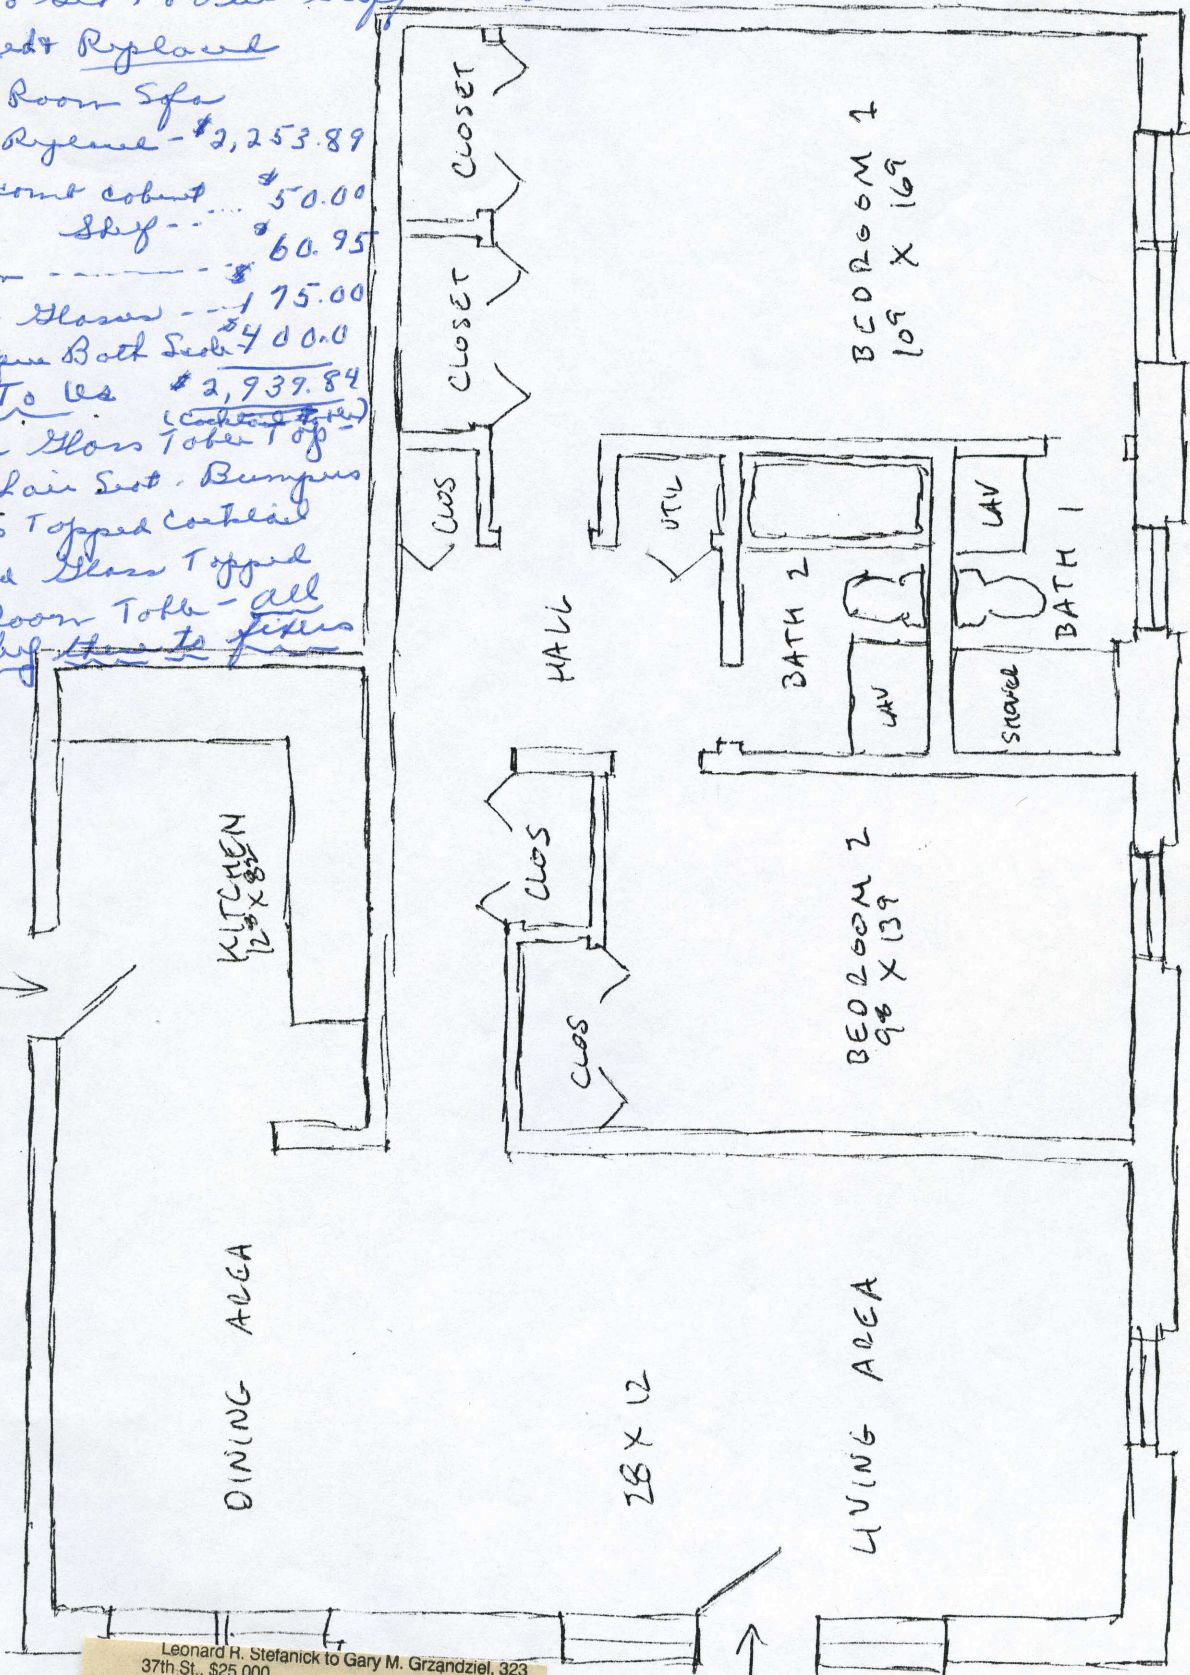 Replaced
Room Sofa
- $2,253.89
$50.00
Shelf -- $60.95
$175.00
Glasses ---
Bath $400.0
To Us $2,939.84
Glass Top
Seat. Bumpers
Topped Cocktail
Glass Topped
Room Table - all
to fixers
CLOSET
CLOSET
BEDROOM 1
10⁹ X 16⁹
CLOS
UTIL
LAV
BATH 1
HALL
BATH 2
LAV
SHOWER
KITCHEN
CLOS
CLOS
BEDROOM 2
9⁸ X 13⁹
DINING AREA
28 X 12
LIVING AREA
Leonard R. Stefanick to Gary M. Grzandziel, 323
37th St., $25,000